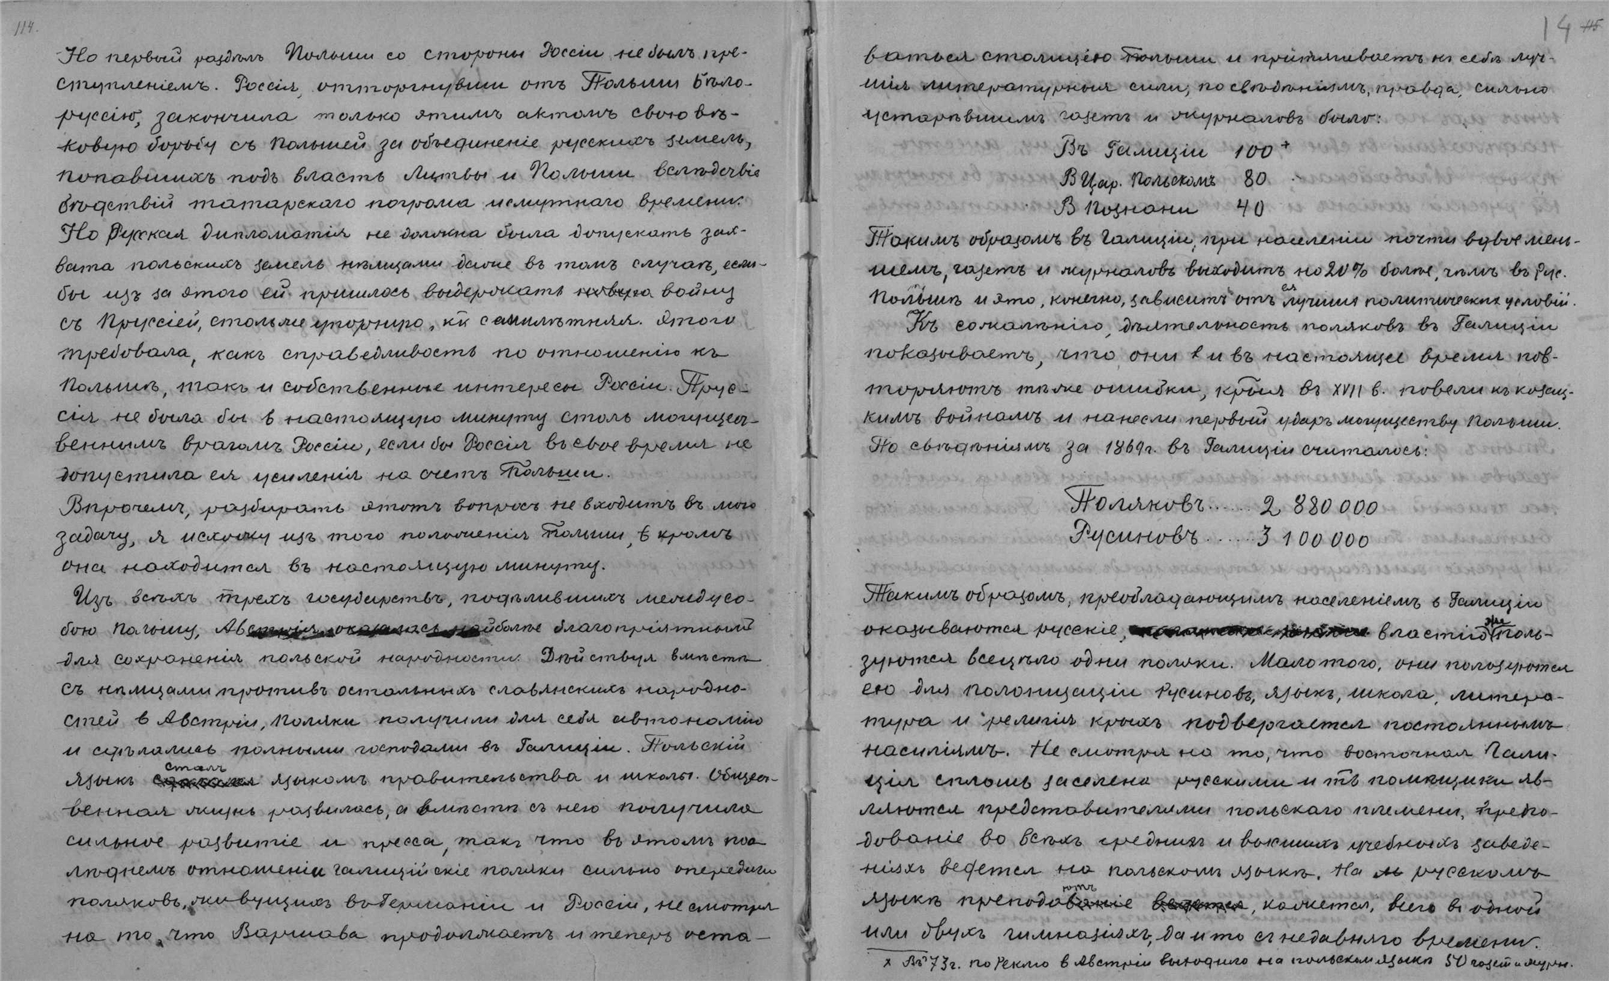 114.
Но первый раздѣлъ Польши со стороны Россіи не былъ пре-
ступленіемъ. Россія, отторгнувши отъ Польши Бѣло-
руссію, закончила только этимъ актомъ свою вѣ-
ковую борьбу съ Польшей за объединеніе русскихъ земель,
попавшихъ подъ власть Литвы и Польши вслѣдствіе
бѣдствій татарскаго погрома и смутнаго времени.
Но Русская дипломатія не должна была допускать зах-
вата польскихъ земель нѣмцами даже въ томъ случаѣ, если-
бы изъ за этого ей пришлось выдержать новую войну
съ Пруссіей, столь же упорную, кк семилѣтняя. Этого
требовала, какъ справедливость по отношенію къ
Польшѣ, такъ и собственные интересы Россіи. Прус-
сія не была бы въ настоящую минуту столь могущест-
веннымъ врагомъ Россіи, если бы Россія въ свое время не
допустила ея усиленія на счетъ Польши.
Впрочемъ, разбирать этотъ вопросъ не входитъ въ мою
задачу, я исхожу изъ того положенія Польши, въ кромъ
она находится въ настоящую минуту.
Изъ всѣхъ трехъ государствъ, подѣлившихъ между со-
бою Польшу, Австрія оказалась наиболѣе благопріятной
для сохраненія польской народности. Дѣйствуя вмѣстѣ
съ нѣмцами противъ остальныхъ славянскихъ народно-
стей в Австріи, поляки получили для себя автономію
и сдѣлались полными господами въ Галиціи. Польскій
языкъ сталъ языкомъ правительства и школы. Общест-
венная жизнь развилась, а вмѣстѣ съ нею получила
сильное развитіе и пресса, такъ что въ этомъ пос-
лѣднемъ отношеніи галиційскіе поляки сильно опередили
поляковъ, живущихъ въ Германіи и Россіи, не смотря
на то, что Варшава продолжаетъ и теперь оста-
14 115
ваться столицею Польши и притягиваетъ къ себѣ луч-
шія литературныя силы, по свѣдѣніямъ, правда, сильно
устарѣвшимъ газетъ и журналовъ было:
Въ Галиціи 100+
В Цар. Польскомъ 80
В Познани 40
Такимъ образомъ въ Галиціи, при населеніи почти вдвое мень-
шемъ, газетъ и журналовъ выходитъ на 20% болѣе, чѣмъ въ Рус.
Польшѣ и это, конечно, зависитъ отъ ея лучшихъ политическихъ условій.
Къ сожалѣнію, дѣятельность поляковъ въ Галиціи
показываетъ, что они и въ настоящее время пов-
торяютъ тѣ же ошибки, крыя въ XVII в. повели къ козац-
кимъ войнамъ и нанесли первый ударъ могуществу Польши.
По свѣдѣніямъ за 1869г. въ Галиціи считалось:
Поляковъ..... 2 880 000
Русиновъ..... 3 100 000
Такимъ образомъ, преобладающимъ населеніемъ в Галиціи
оказываются русскіе, властію же поль-
зуются всецѣло одни поляки. Мало того, они пользуются
ею для полонизаціи Русиновъ, языкъ, школа, литера-
тура и религія крыхъ подвергается постояннымъ
насиліямъ. Не смотря на то, что восточная Гали-
ція сплошь заселена русскими и тѣ помѣщики яв-
ляются представителями польскаго племени, препо-
дованіе во всѣхъ среднихъ и высшихъ учебныхъ заведе-
ніяхъ ведется на польскомъ языкѣ. На русскомъ
языкѣ преподаютъ, кажется, всего въ одной
или двухъ гимназіяхъ, да и то съ недавняго времени.
х Въ 73г. по Реклю в Австріи выходило на польскомъ языкѣ 50 газет и журн.